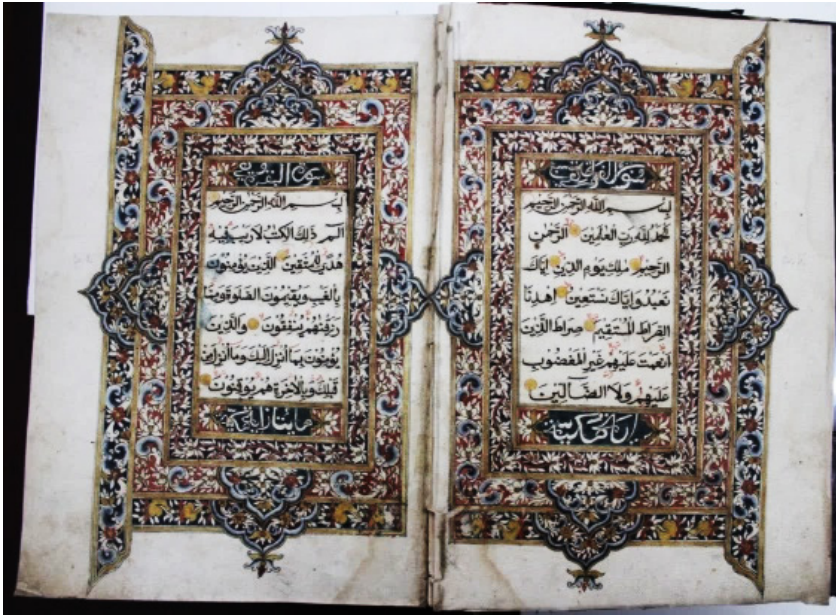 بسم الله الرحمن الرحيم
الحمد لله رب العلمين الرحمن
الرحيم ملك يوم الدين اياك
نعبد واياك نستعين اهدنا
الصراط المستقيم صراط الذين
انعمت عليهم غير المغضوب
عليهم ولا الضالين
سورة البقرة
بسم الله الرحمن الرحيم
الم ذلك الكتب لا ريب فيه
هدى للمتقين الذين يؤمنون
بالغيب ويقيمون الصلوة ومما
رزقنهم ينفقون والذين
يؤمنون بما انزل اليك وما انزل من
قبلك وبالاخرة هم يوقنون